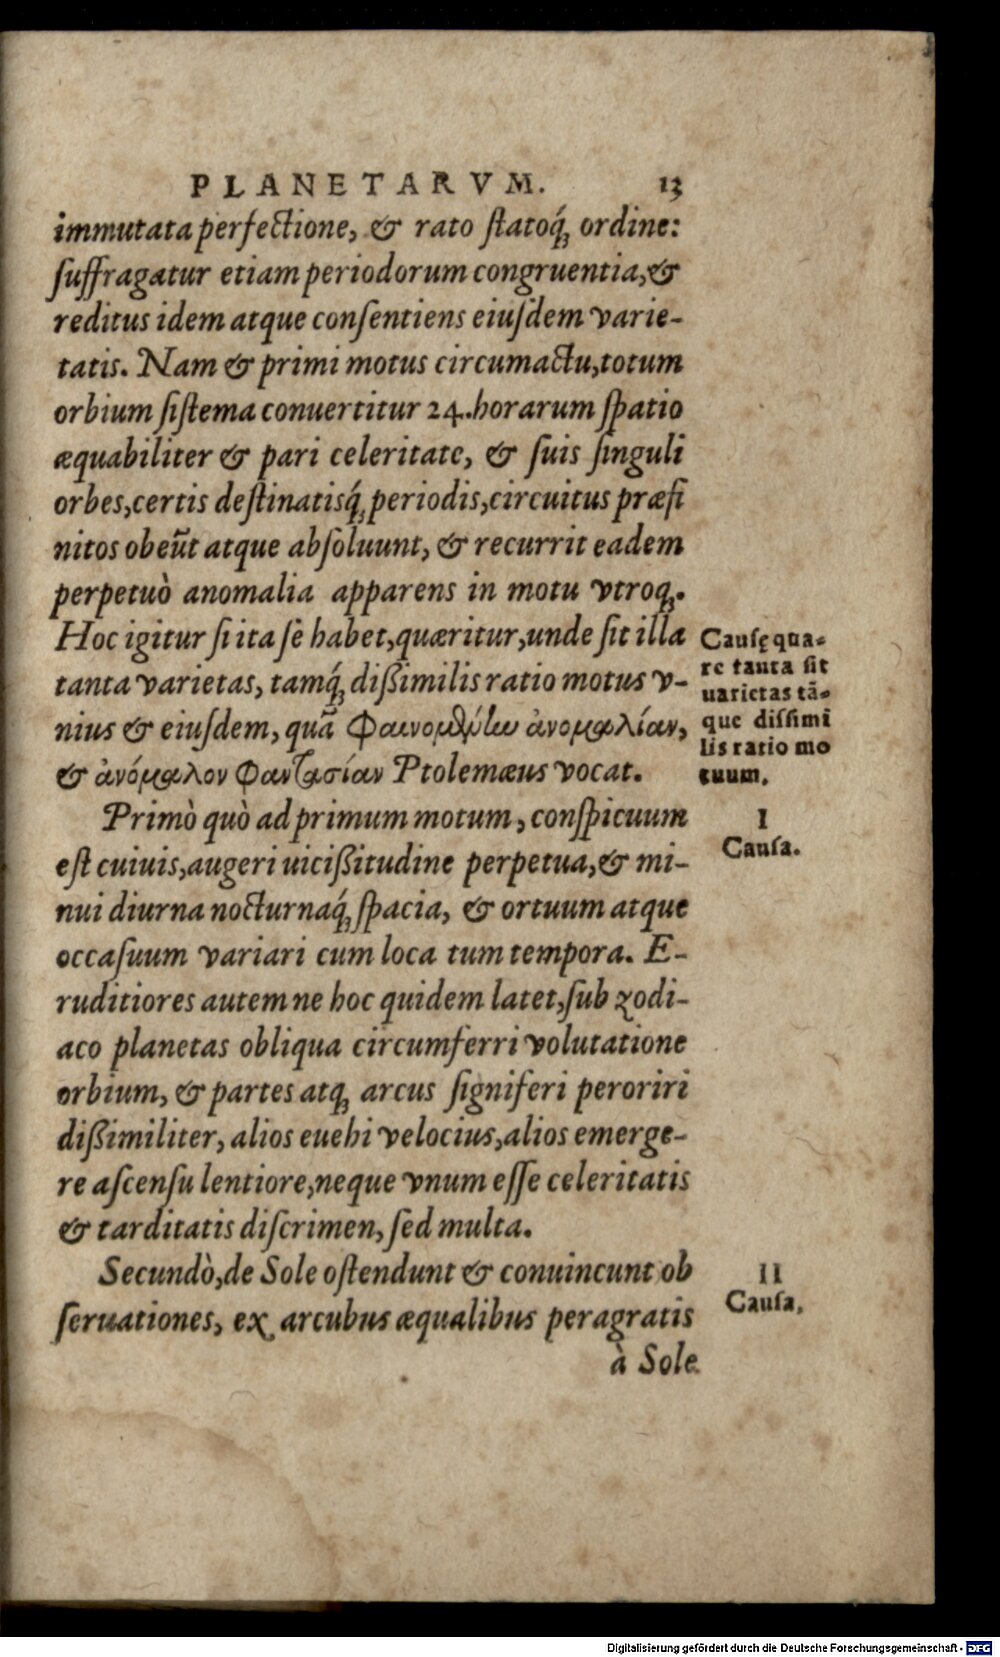 PLANETARVM. 13
immutata perfectione, & rato ſtatoq́; ordine:
ſuffragatur etiam periodorum congruentia, &
reditus idem atque conſentiens eiuſdem varie-
tatis. Nam & primi motus circumactu, totum
orbium ſiſtema conuertitur 24. horarum ſpatio
æquabiliter & pari celeritate, & ſuis ſinguli
orbes, certis deſtinatisq́; periodis, circuitus præfi
nitos obeũt atque abſoluunt, & recurrit eadem
perpetuò anomalia apparens in motu vtroq;.
Hoc igitur ſi ita ſe habet, quæritur, unde ſit illa
tanta varietas, tamq́; dißimilis ratio motus v-
nius & eiuſdem, quã Φαινομθμ́ίω ἀνομαλίαν,
& ἀνόμαλον Φαντασίαν Ptolemæus vocat.
Cauſę qua-
re tanta ſit
uarietas tã-
que diſſimi
lis ratio mo
tuum.
Primò quò ad primum motum, conſpicuum
eſt cuiuis, augeri uicißitudine perpetua, & mi-
nui diurna nocturnaq́; ſpacia, & ortuum atque
occaſuum variari cum loca tum tempora. E-
ruditiores autem ne hoc quidem latet, ſub zodi-
aco planetas obliqua circumferri volutatione
orbium, & partes atq; arcus ſigniferi peroriri
dißimiliter, alios euehi velocius, alios emerge-
re aſcenſu lentiore, neque vnum eſſe celeritatis
& tarditatis diſcrimen, ſed multa.
I
Cauſa.
Secundò, de Sole oſtendunt & conuincunt ob
ſeruationes, ex arcubus æqualibus peragratis
à Sole
II
Cauſa.
Digitalisierung gefördert durch die Deutsche Forschungsgemeinschaft - DFG